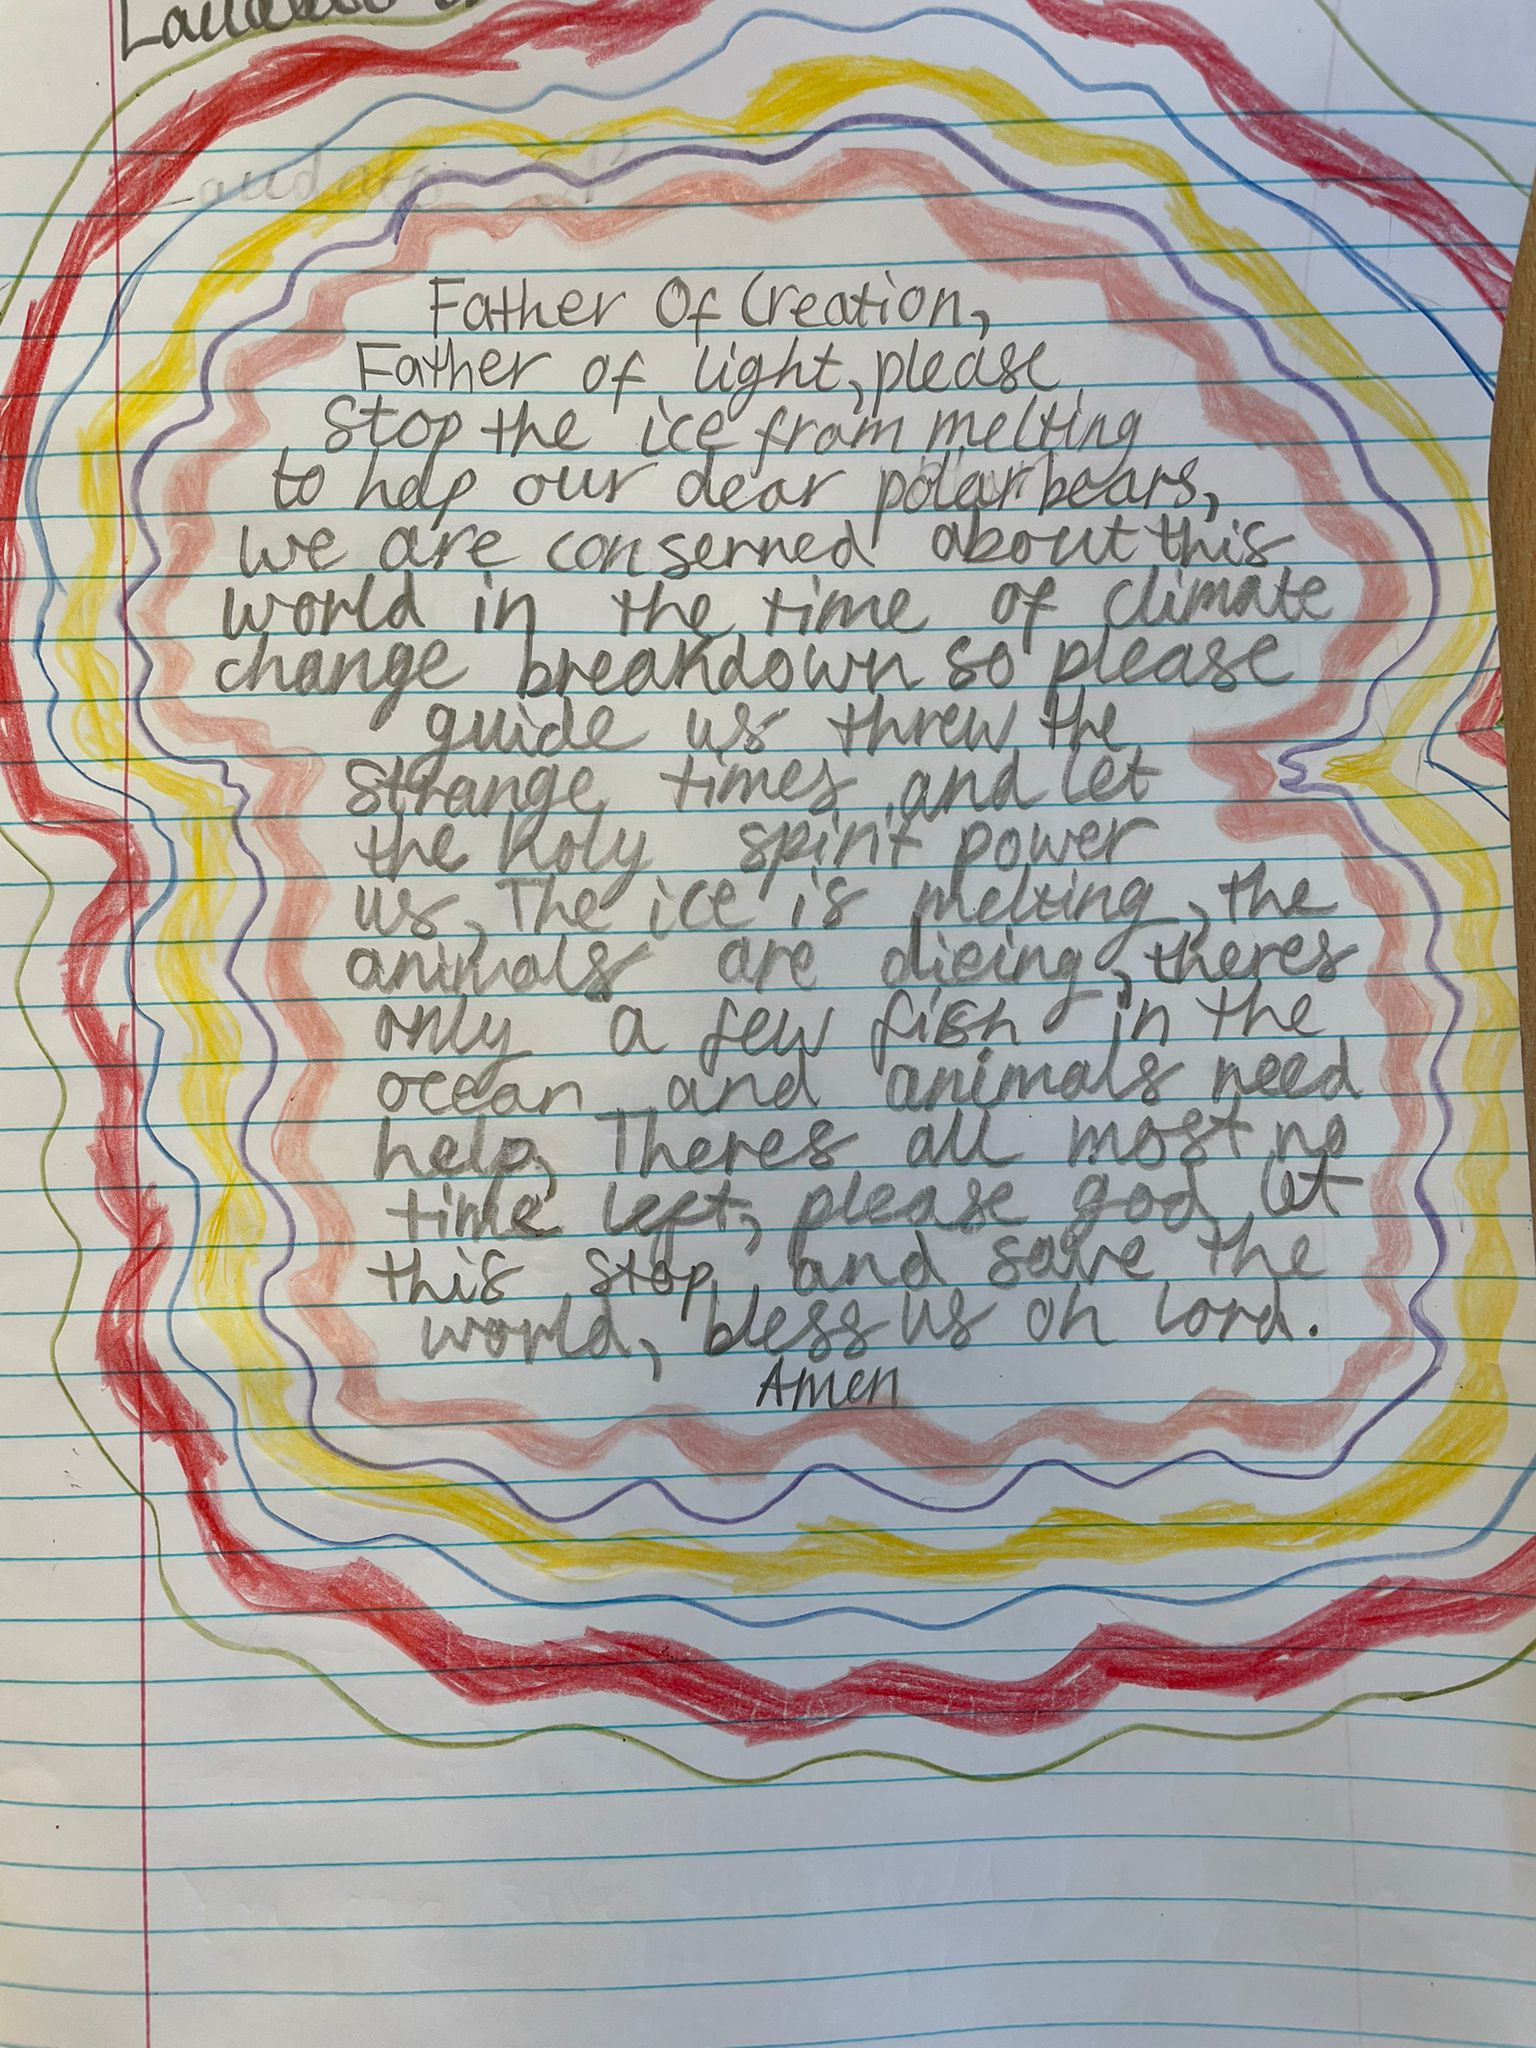 Laudato
Laudato Si'
Father Of Creation,
Father of light, please
Stop the ice from melting
to help our dear polar bears,
we are conserned about this
world in the time of climate
change breakdown so please
guide us threw the
strange times and let
the holy spirit power
us, The ice is melting, the
animals are dieing, theres
only a few fish in the
ocean and animals need
help, Theres all most no
time left, please god let
this stop and save the
world, bless us oh lord.
Amen